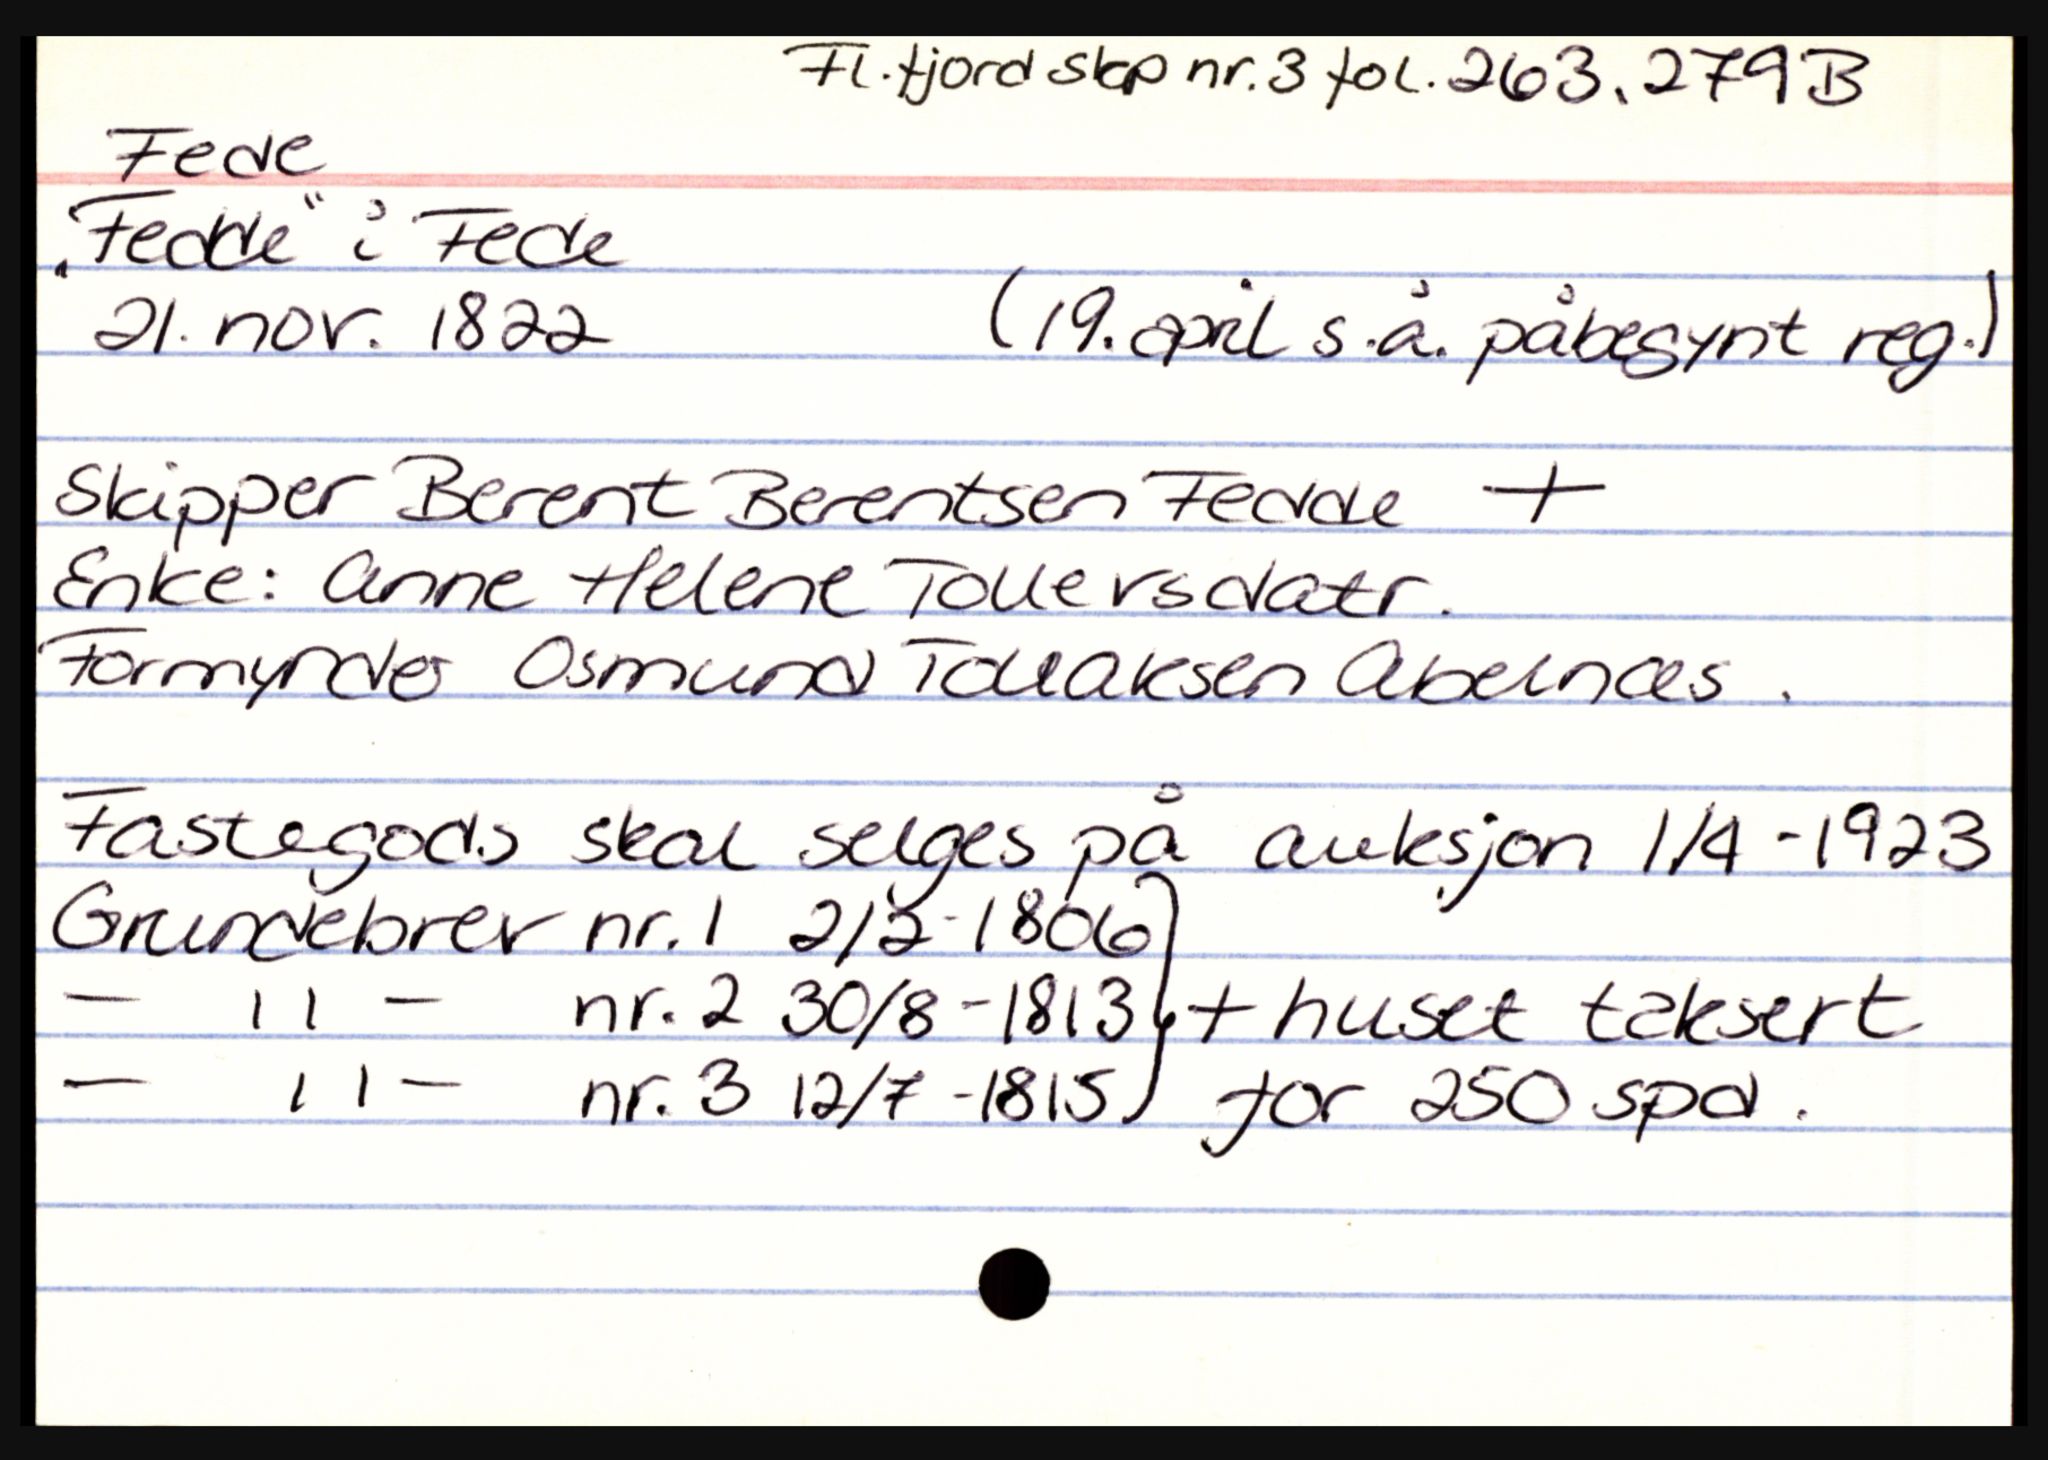 Fl.fjord skp nr.3 fol. 263, 279B
Fede
„Fedde“ i Fede
21. nov. 1822 (19. april s.å. påbegynt reg.)
Skipper Berent Berentsen Fedde +
Enke: Anne Helene Tollersdatr.
Formynder Osmund Tollaksen Abelnæs.
Fastegods skal selges på auksjon 1/4 -1923
Grundebrev nr.1 2/2-1806
— 11 — nr. 2 30/8 -1813 + huset taksert
— 11 — nr. 3 12/7 -1815 for 250 spd.